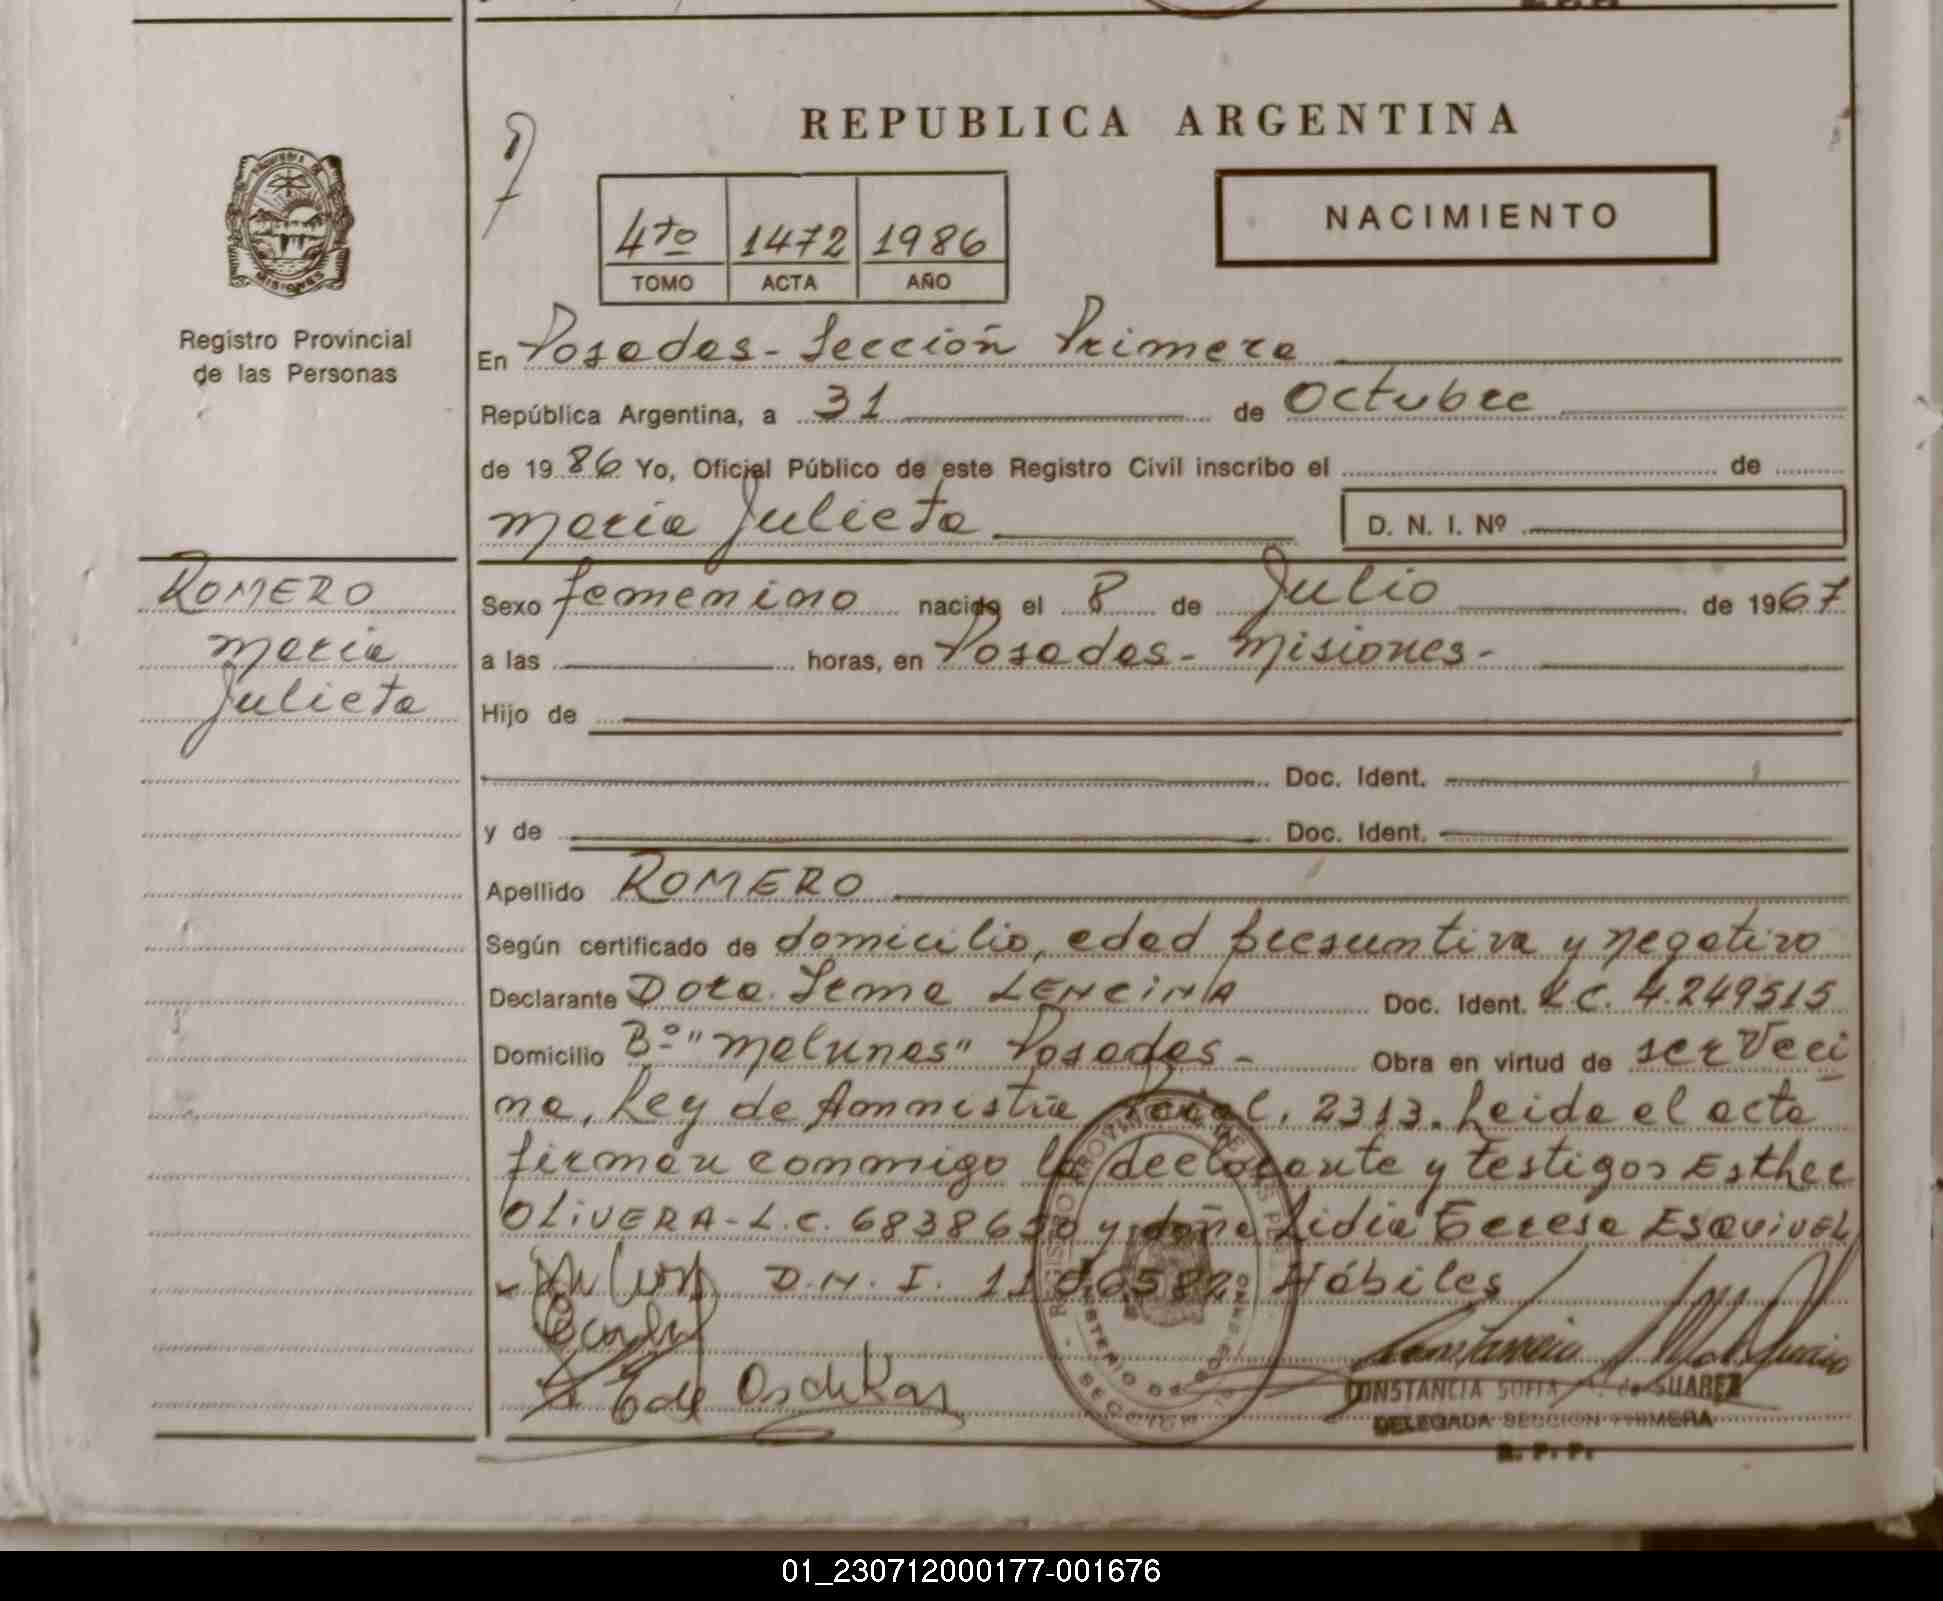 REPUBLICA ARGENTINA
NACIMIENTO
4to 1472 1986
TOMO ACTA AÑO
MISIONES
Registro Provincial
de las Personas
En Posadas - Sección Primera
República Argentina, a 31 de Octubre
de 1986 Yo, Oficial Público de este Registro Civil inscribo el de
María Julieta D. N. I. Nº
ROMERO
María
Julieta
Sexo femenino nacido el 8 de Julio de 1967
a las horas, en Posadas - Misiones -
Hijo de
Doc. Ident.
y de Doc. Ident.
Apellido ROMERO
Según certificado de domicilio, edad presuntiva y negativo
Declarante Dora LENCINA Doc. Ident. L.C. 4.249515
Domicilio Bº "Malvinas" Posadas - Obra en virtud de ser veci
na, Ley de Amnistía 2313. Leida el acta
firman conmigo la declarante y testigos Esther
OLIVERA - L.C. y doña Lidia Teresa ESQUIVEL
D.N.I. Hábiles
CONSTANCIA SOFIA de SUAREZ
DELEGADA SECCION PRIMERA
R. P. P.
01_230712000177-001676